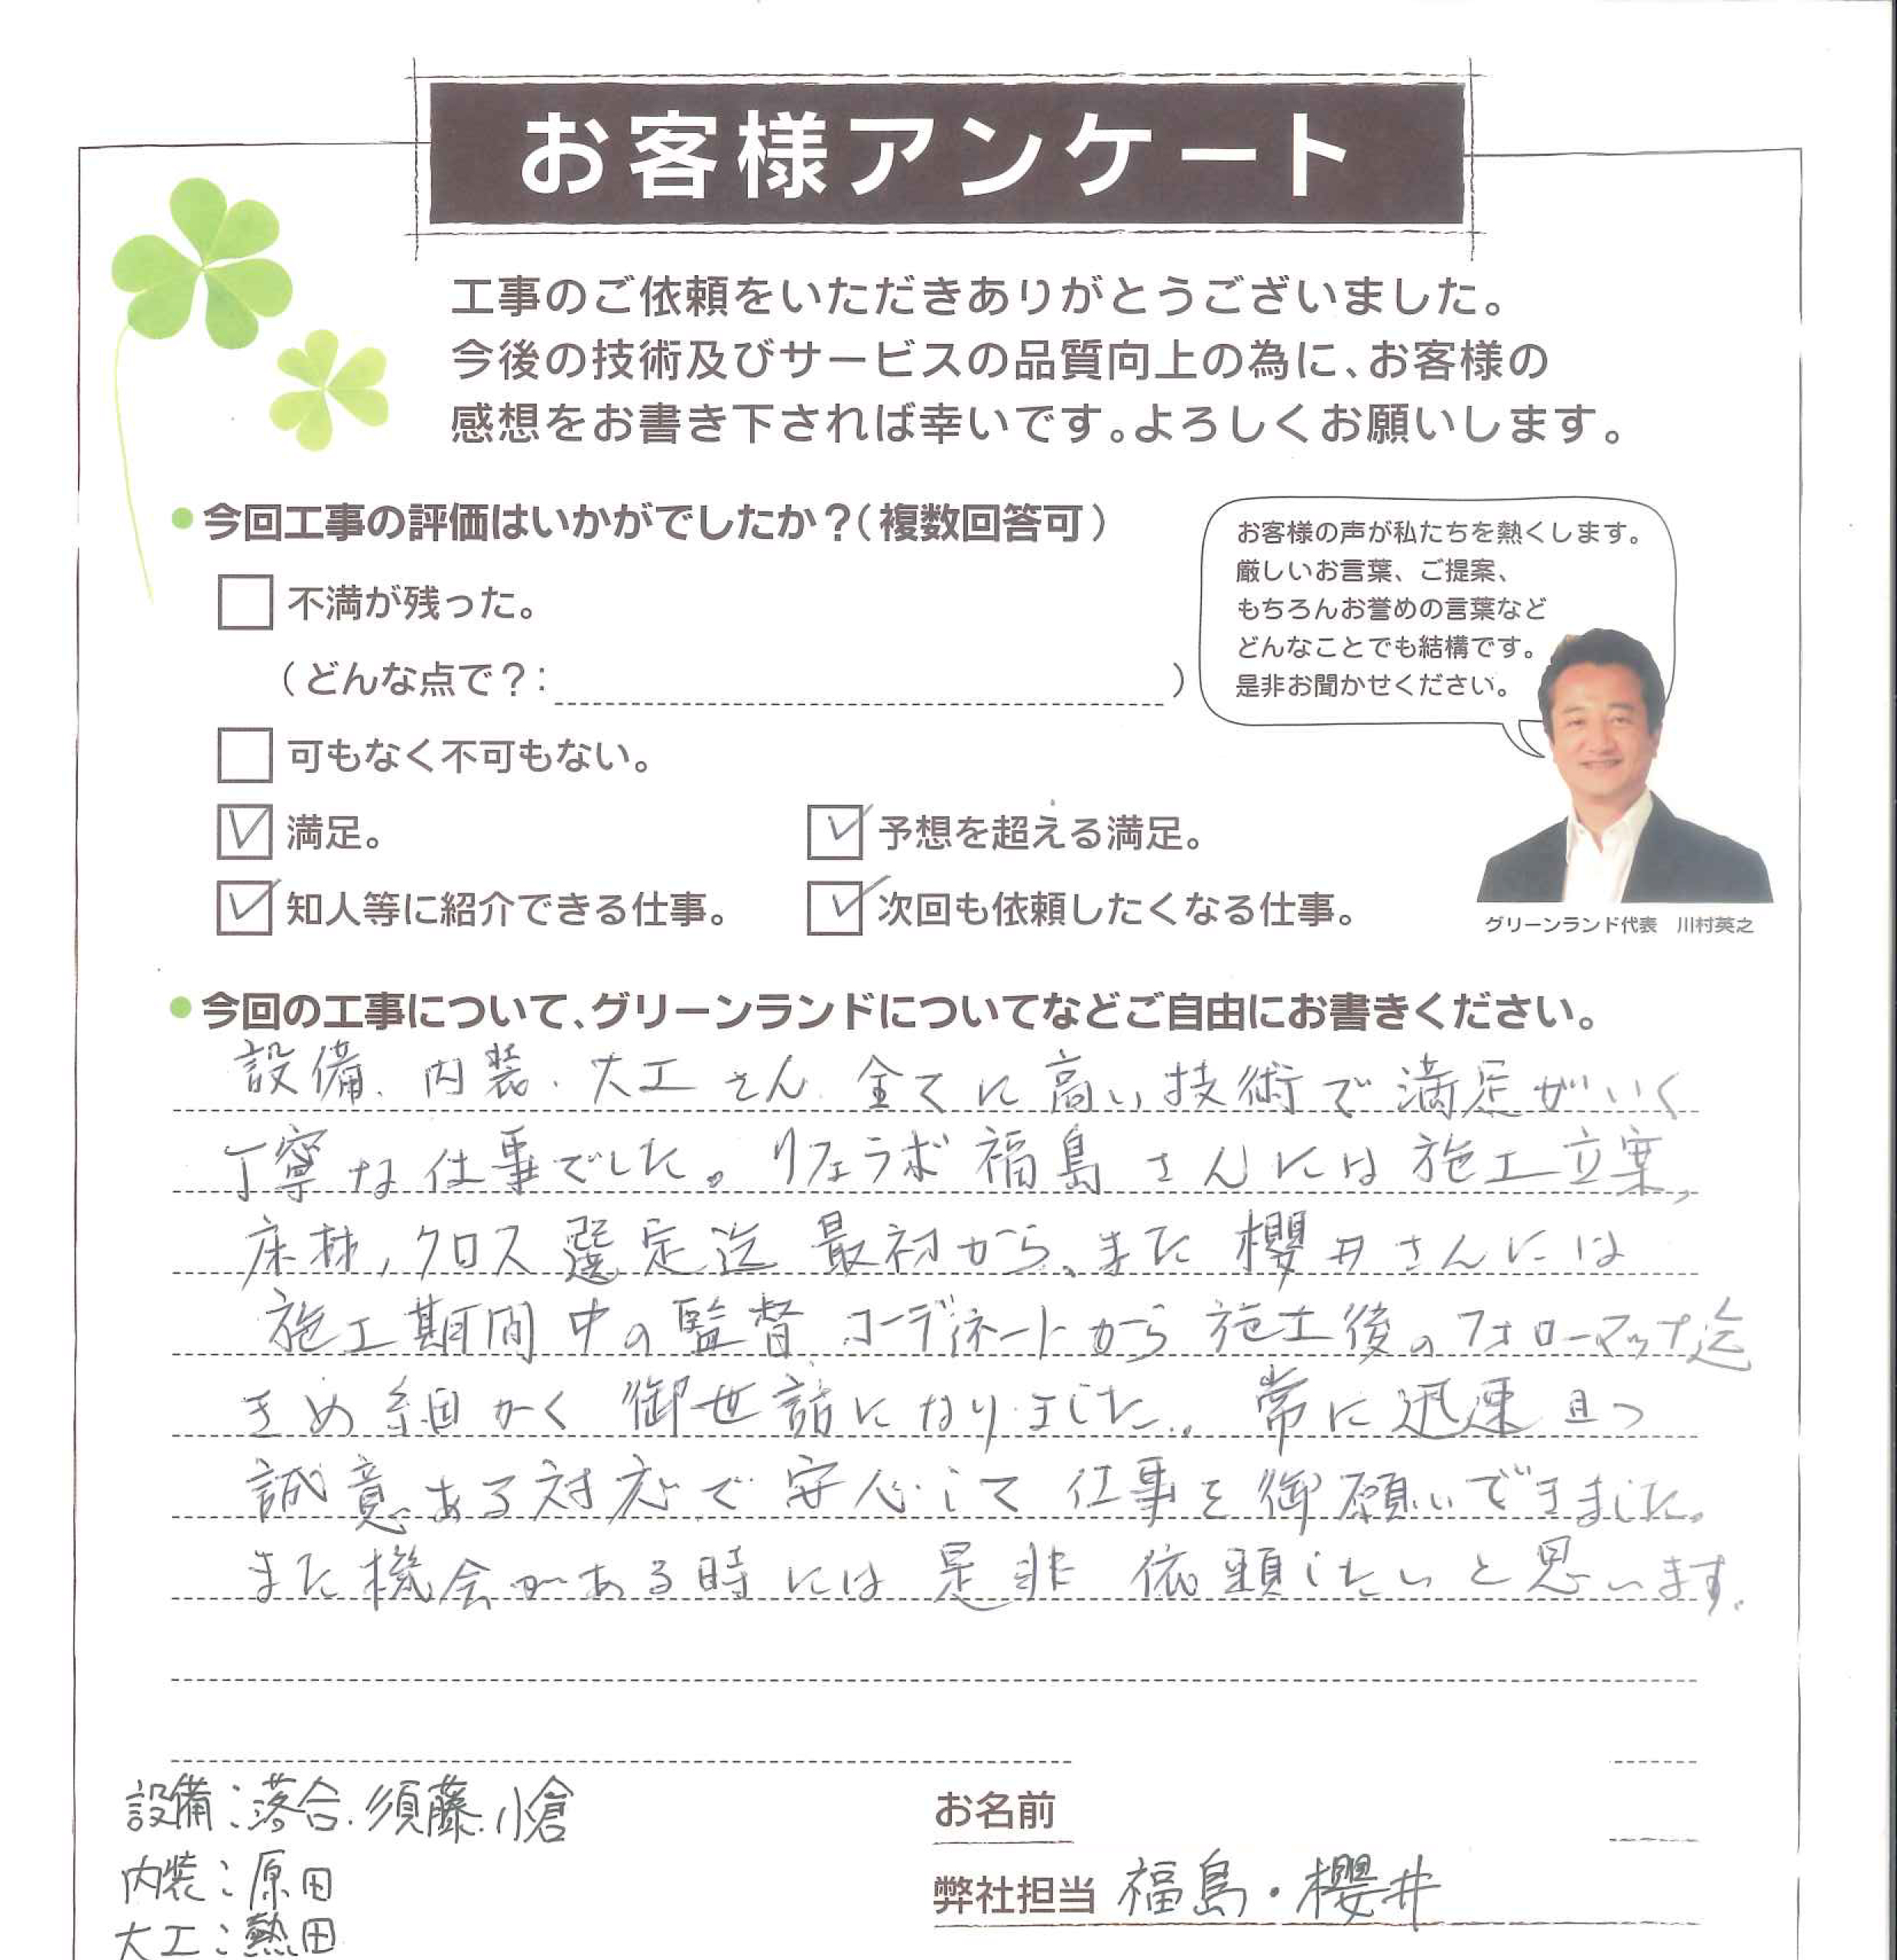 お客様アンケート
工事のご依頼をいただきありがとうございました。
今後の技術及びサービスの品質向上の為に、お客様の
感想をお書き下されば幸いです。よろしくお願いします。
●今回工事の評価はいかがでしたか？（複数回答可）
不満が残った。
（どんな点で？：　）
可もなく不可もない。
満足。
予想を超える満足。
知人等に紹介できる仕事。
次回も依頼したくなる仕事。
お客様の声が私たちを熱くします。
厳しいお言葉、ご提案、
もちろんお誉めの言葉など
どんなことでも結構です。
是非お聞かせください。
グリーンランド代表　川村英之
●今回の工事について、グリーンランドについてなどご自由にお書きください。
設備、内装、大工さん 全てに高い技術で満足がいく
丁寧な仕事でした。リフェラボ福島さんには施工立案、
床材，クロス選定迄 最初から、また櫻井さんには
施工期間中の監督 コーデネートから施工後のフォローマップ迄
きめ細かく御世話になりました。常に迅速且つ
誠意ある対応で安心して仕事を御願いできました。
また機会がある時には是非 依頼したいと思います。
設備：落合.須藤.小倉
内装：原田
大工：熱田
お名前
弊社担当 福島・櫻井